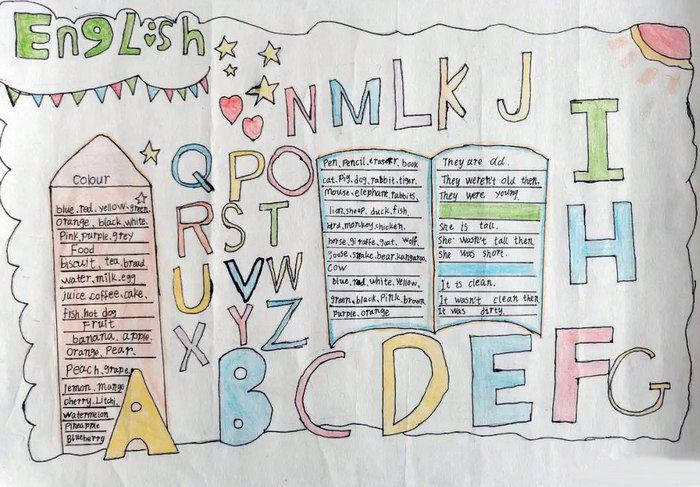 EngLish
N M L K J
Q P O
R S T
U V W
X Y Z
A B C D E F G
H
I
Colour
blue. red. yellow. green.
orange. black. white.
Pink. purple. grey
Food
biscuit. tea. bread
water. milk. egg
juice. coffee. cake.
fish. hot dog
Fruit
banana. apple.
Orange. Pear.
Peach. grape.
lemon. mango
Cherry. Litchi.
Watermelon
Pineapple
Blueberry
Pen. Pencil. eraserr. book
cat. Pig. dog. rabbit. tiger.
mouse. elephant. rabbits.
lion. sheep. duck. fish.
bird. monkey. chicken.
horse. giraffe. goat. wolf.
goose. snake. bear. kangaroo.
cow
blue. red. white. Yellow.
green. black. Pink. brown
Purple. orange
They are od.
They weren't old then.
They were young.
She is tall.
She wasn't tall then
She was short.
It is clean.
It wasn't clean then
It was dirty.